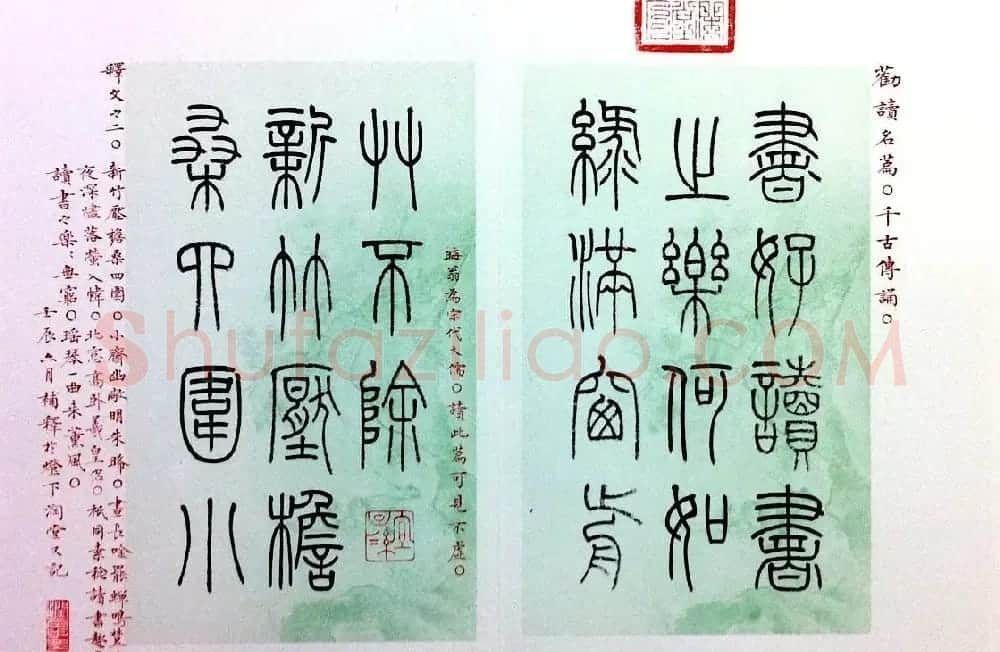 勸讀名篇○千古傳誦○
書好讀書
之樂何如
綠滿窗前
晦翁為宋代大儒○讀此篇可見不虛○
艸不除
新竹壓檐
桑四圍小
釋文々二○新竹壓檐桑四圍○小齋幽敞明朱曦○晝長吟罷蟬鳴
夜深燼落螢入幃○北窓高卧羲皇侶○祇因素稔讀書趣
讀書々樂々無窮○瑤琴一曲來薰風○
壬辰六月補釋於燈下潤堂又記
Shufaziliao.COM